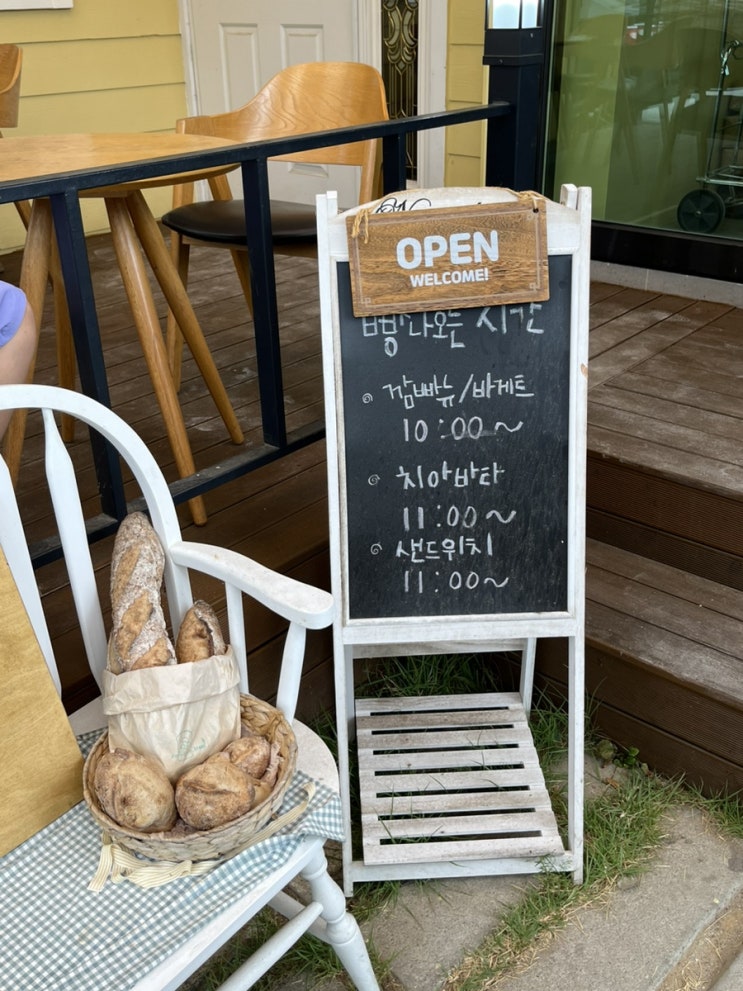 OPEN
WELCOME!
빵나오는 시간
깜빠뉴/바게트
10:00~
치아바타
11:00~
샌드위치
11:00~